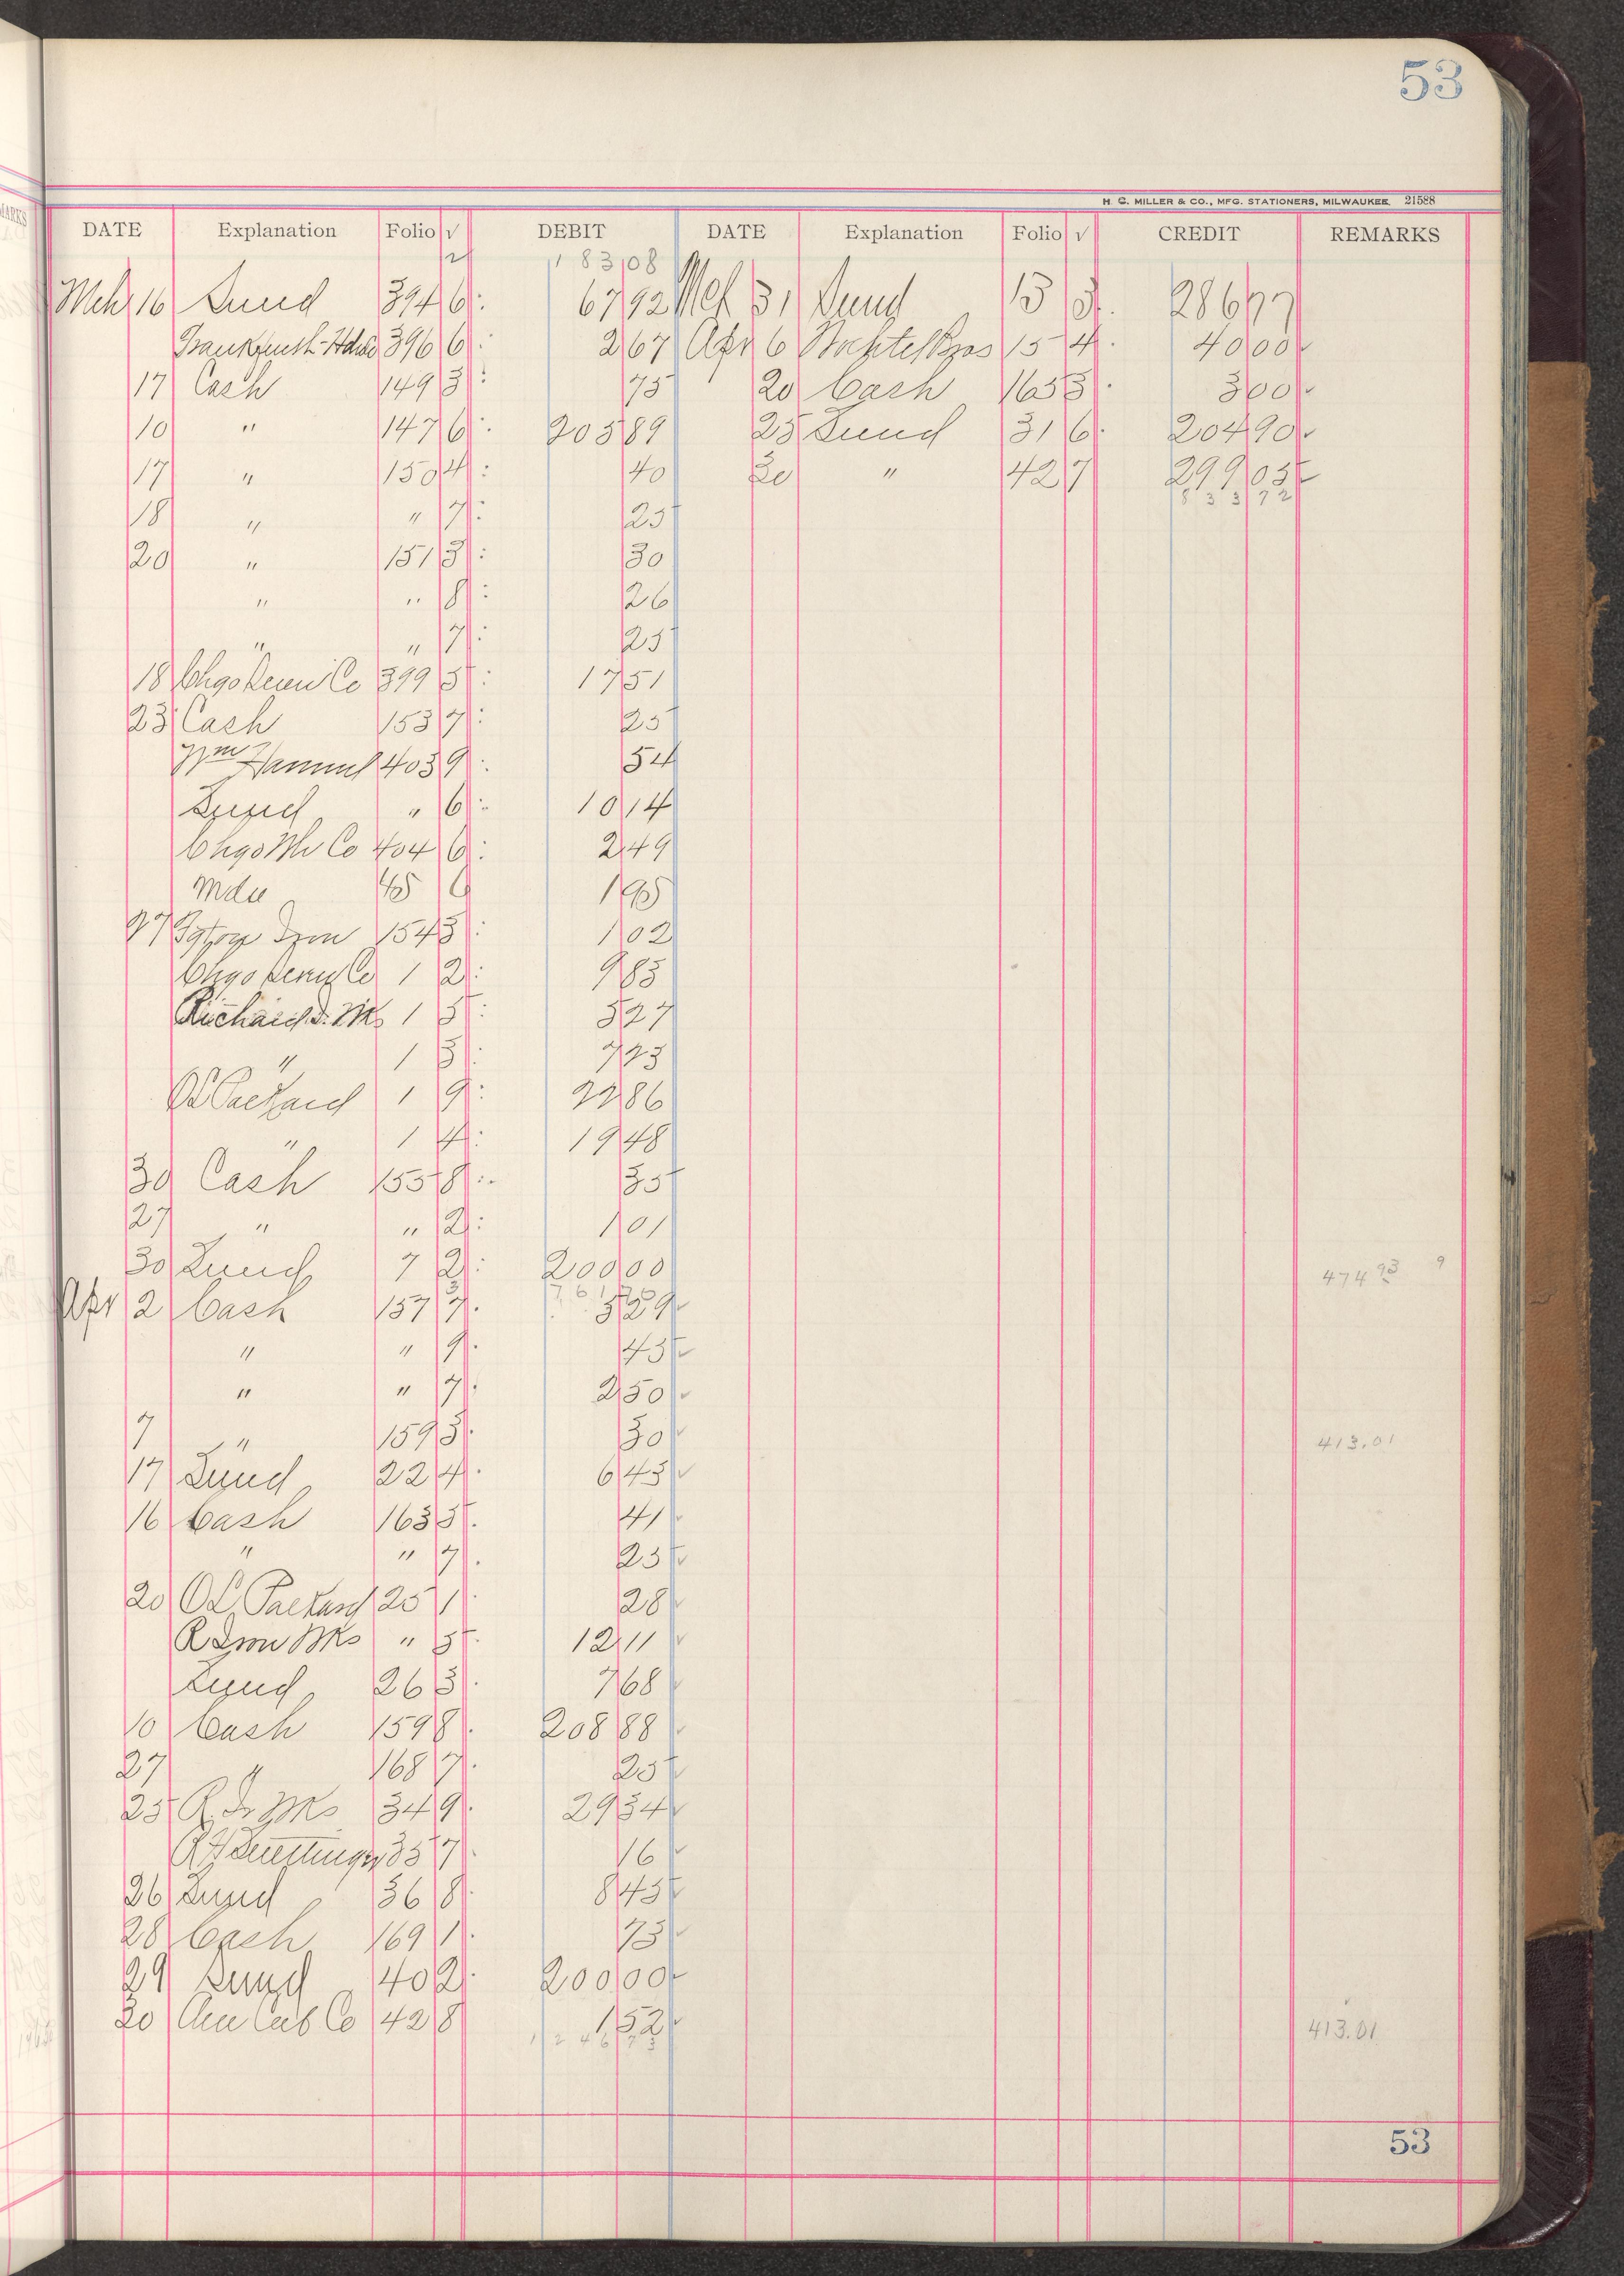 53
H. G. MILLER & CO., MFG. STATIONERS, MILWAUKEE. 21588
DATE Explanation Folio √ DEBIT DATE Explanation Folio √ CREDIT REMARKS
183 08
Mch 16 Sund 394 6 67 92 Mch 31 Sund 13 3 286 77
Frankfurth Hdw Co 396 6 2 67 Apr 6 Bros 15 4 40 00
17 Cash 149 3 75 20 Cash 165 3 3 00
10 " 147 6 205 89 25 Sund 31 6 204 90
17 " 150 4 40 30 " 42 7 299 05
833 72
18 " " 7 25
20 " 151 3 30
" " 8 26
" " 7 25
18 Chgo Co 399 5 17 51
23 Cash 153 7 25
Wm Hammel 403 9 54
Sund " 6 10 14
Chgo Co 404 6 2 49
Mdse 405 6 1 95
27 Iron 154 3 1 02
Chgo Co 1 2 9 85
Richard I. Wks 1 5 5 27
" 1 3 7 23
O L Packard 1 9 22 86
" 1 4 19 48
30 Cash 155 8 35
27 " " 2 1 01
30 Sund 7 2 200 00
474 93 9
Apr 2 Cash 157 7 5 29
" " 9 45
" " 7 2 50
7 " 159 3 30
413.01
17 Sund 22 4 6 45
16 Cash 163 5 41
" " 7 25
20 O L Packard 25 1 28
R Iron Wks " 5 12 11
Sund 26 3 7 68
10 Cash 159 8 208 88
27 " 168 7 25
25 R Ir Wks 34 9 29 34
35 7 16
26 Sund 36 8 8 45
28 Cash 169 1 75
29 Sund 40 2 200 00
30 Co 42 8 1 52
413.01
53